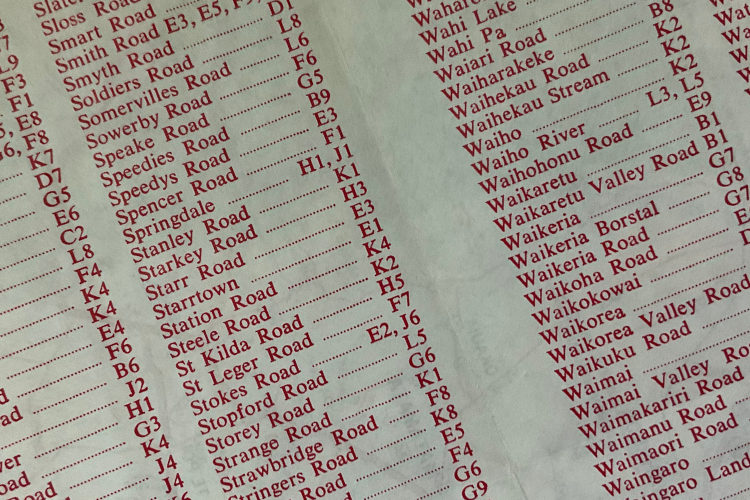 L9
F3
F1
E8
F8
K7
D7
G5
E6
C2
L8
F4
K4
K4
E4
F6
B6
J2
H1
G3
K4
J4
J4
Sloss Road
Smart Road
Smith Road E3, E5, F9,
Smyth Road D1
Soldiers Road L8
Somervilles Road L6
Sowerby Road F6
Speake Road G5
Speedies Road B9
Speedys Road E3
Spencer Road F1
Springdale H1, J1
Stanley Road K1
Starkey Road H3
Starr Road E3
Starrtown E1
Station Road K4
Steele Road K2
St Kilda Road H5
St Leger Road F7
Stokes Road E2, J6
Stopford Road L5
Storey Road G6
Strange Road K1
Strawbridge Road F8
Stringers Road K8
E5
F4
G6
G9
Wahi Lake
Wahi Pa
Waiari Road
Waiharakeke B8
Waihekau Road K2
Waihekau Stream K2
Waiho K2
Waiho River L3, L5
Waihohonu Road E9
Waikaretu B1
Waikaretu Valley Road B1
Waikeria G7
Waikeria Borstal G8
Waikeria Road G7
Waikoha Road
Waikokowai
Waikorea
Waikorea Valley Road
Waikuku Road
Waimai
Waimai Valley Ro
Waimakariri Road
Waimanu Road
Waimaori Road
Waingaro
Waingaro Land